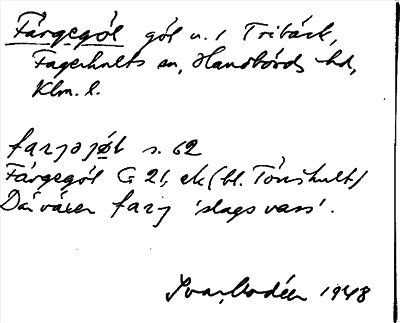 Färgegöl göl n. i Tribäck,
Fagerhults sn, Handbörds hd,
Klm. l.
farjəjøl s. 62
Färgegöl G 21, ek (bl. Tönshult)
Där växer farj 'slags vass'.
Ivar Modéer 1948